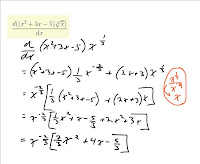 d((x² + 3x − 5)∛x)
dx
d/dx (x²+3x-5) x^(1/3)
= (x²+3x-5) 1/3 x^(-2/3) + (2x+3) x^(1/3)
= x^(-2/3) [1/3 (x²+3x-5) + (2x+3) x]
= x^(-2/3) [1/3 x² + x - 5/3 + 2x² + 3x]
= x^(-2/3) [7/3 x² + 4x - 5/3]